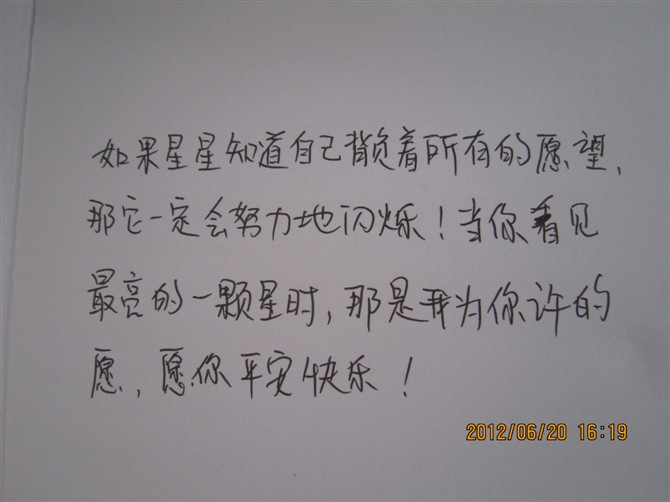 如果星星知道自己背负着所有的愿望,
那它一定会努力地闪烁!当你看见
最亮的一颗星时,那是我为你许的
愿,愿你平安快乐!
2012/06/20 16:19